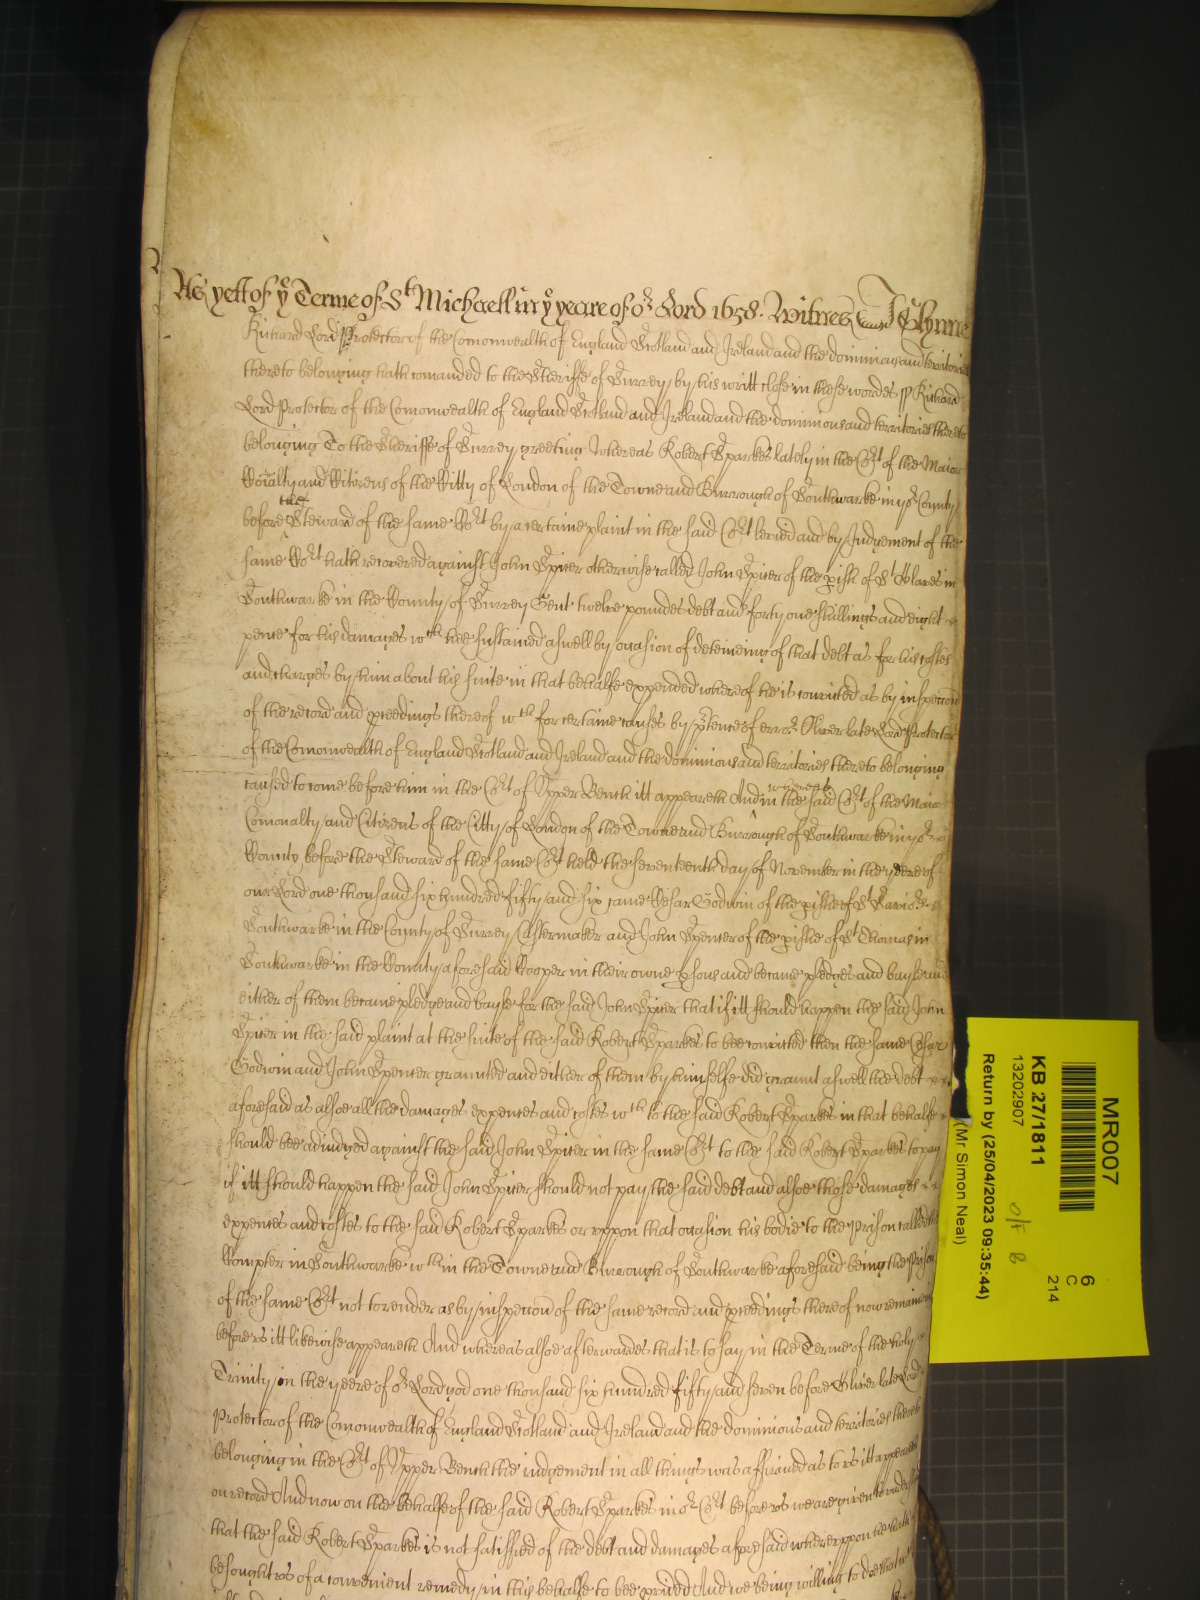 As yett of ye Terme of St Michaell in ye yeare of or Lord 1658. Witnes J Glynne
Richard Lord Protector of the Comonwealth of England Scotland and Ireland and the dominions and territories
thereto belonging hath comanded to the Sheriffe of Surrey by his writt close in these wordes ss Richard
Lord Protector of the Comonwealth of England Scotland and Ireland and the dominions and territories thereto
belonging To the Sheriffe of Surrey greeting Whereas Robert Sparkes lately in the Cort of the Maior
Coialty and Citizens of the Citty of London of the Towne and Burrough of Southwarke in yor County
before the Steward of the same Cort by a certaine plaint in the said Cort levied and by Judgement of the
same Cort hath recovered against John Spicer otherwise called John Spicer of the pish of St Olaves in
Southwarke in the County of Surrey Gent twelve poundes debt and forty one shillings and eight
pence for his damages wch hee sustained aswell by occasion of deteineing of that debt as for his costes
and charges by him about his suite in that behalfe expended whereof he is convicted as by inspeccon
of the record and pceedings thereof wch for certaine causes by ptence of error Oliver late Lord Protector
of the Comonwealth of England Scotland and Ireland and the dominions and territories thereto belonging
caused to come before him in the Cort of Upper Bench itt appeareth And whereas in the said Cort of the Maior
Comonalty and Citizens of the Citty of London of the Towne and Burrough of Southwarke in yor
County before the Steward of the same Cort held the seventeenth day of November in the yeere of
our Lord one thousand six hundred fifty and six came Cesar Godwin of the pishe of St Saviors
Southwarke in the County of Surrey and John Spencer of the pishe of St Thomas in
Southwarke in the County aforesaid Cooper in their owne psons and became pledges and bayle and
either of them became pledge and bayle for the said John Spicer that if itt should happen the said John
Spicer in the said plaint at the suite of the said Robert Sparkes to bee convicted then the same Cesar
Godwin and John Spencer graunted and either of them by himselfe did graunt aswell the debt
aforesaid as alsoe all the damages expences and costes wch to the said Robert Sparkes in that behalfe
should bee adiudged against the said John Spicer in the same Cort to the said Robert Sparkes to pay
if itt should happen the said John Spicer should not pay the said debt and alsoe those damages
expences and costes to the said Robert Sparkes or uppon that occasion his bodie to the Prison called the
Compter in Southwarke wthin the Towne and Burrough of Southwarke aforesaid being the Prison
of the same Cort not to render as by inspeccon of the same record and pceedings thereof now remaining
before us itt likewise appeareth And whereas alsoe afterwardes that is to say in the Terme of the holy
Trinity in the yeere of or Lord god one thousand six hundred fifty and seven before Oliver late Lord
Protector of the Comonwealth of England Scotland and Ireland and the dominions and territories thereto
belonging in the Cort of Upper Bench the iudgement in all things was affirmed as to us itt appeareth
on record And now on the behalfe of the said Robert Sparkes in or Cort before us we are given to understand
that the said Robert Sparkes is not satisfied of the debt and damages aforesaid whereuppon he hath
besought us of a convenient remedy in this behalfe to bee pvided And we being willing to doe that
MR007
6
C
214
KB 27/1811
13202907
Return by (25/04/2023 09:35:44)
(Mr Simon Neal)